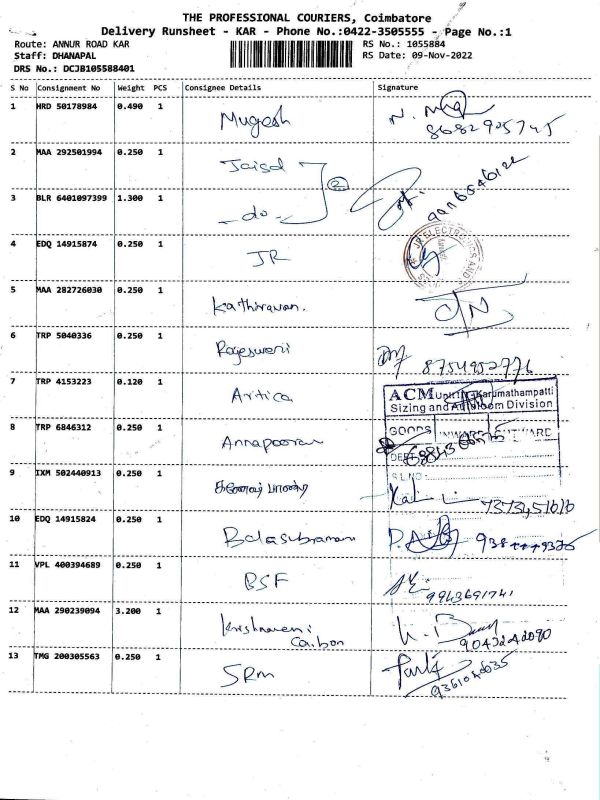 THE PROFESSIONAL COURIERS, Coimbatore
Delivery Runsheet - KAR - Phone No.:0422-3505555 - Page No.:1
Route: ANNUR ROAD KAR RS No.: 1055884
Staff: DHANAPAL RS Date: 09-Nov-2022
DRS No.: DCJB105588401
S No Consignment No Weight PCS Consignee Details Signature
1 HRD 50178984 0.490 1 Mugesh
8682905745
2 MAA 292501994 0.250 1
3 BLR 6401097399 1.300 1 - do -
4 EDQ 14915874 0.250 1 JR
JR ELECTRONICS AND
5 MAA 282726030 0.250 1 Kathiravan.
6 TRP 5040336 0.250 1 Rajesweri
8754952776
7 TRP 4153223 0.120 1 Artica
ACM Unit Karumathampatti
Sizing and Division
8 TRP 6846312 0.250 1 Annapooran
GOODS INWARD
9 IXM 502440913 0.250 1
10 EDQ 14915824 0.250 1 Balasubramani
11 VPL 400394689 0.250 1 BSF
9943691741
12 MAA 290239094 3.200 1 Krishnaveni
Carbon
13 TMG 200305563 0.250 1 SRM